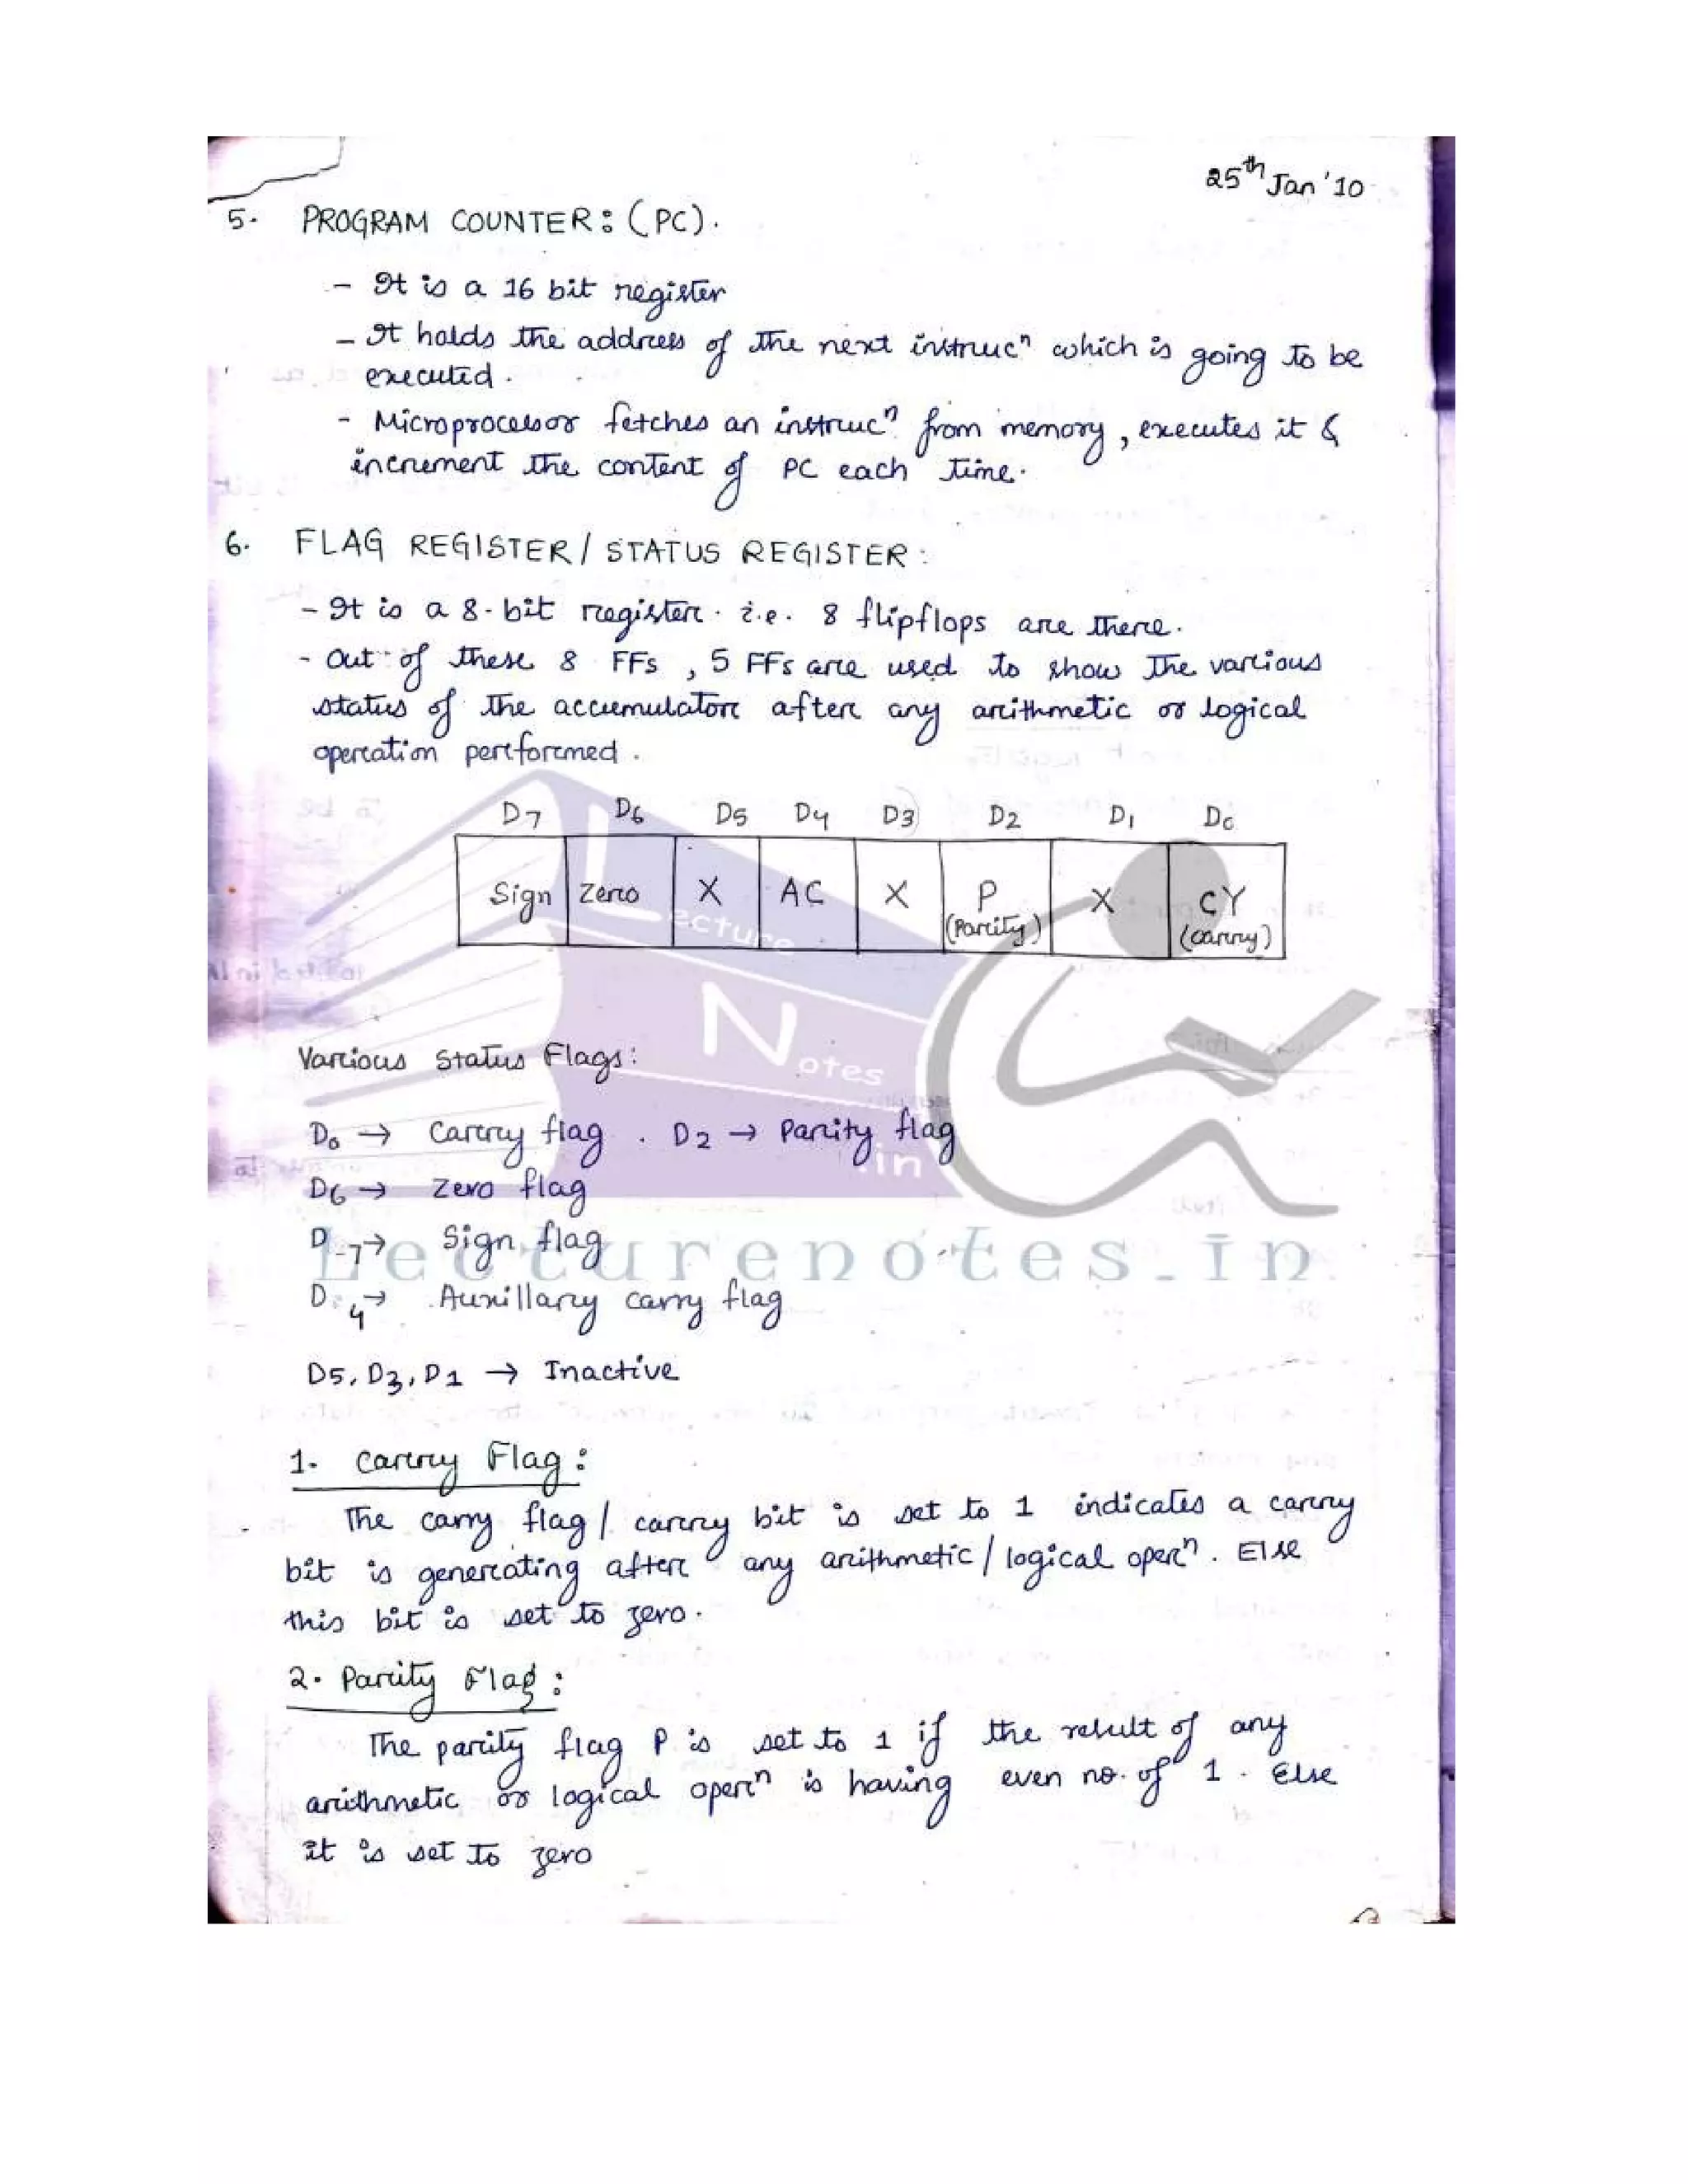 25th Jan '10
5. PROGRAM COUNTER: (PC).
- It is a 16 bit register
- It holds the address of the next instrucn which is going to be
executed.
- Microprocessor fetches an instrucn from memory, executes it &
increment the content of PC each time.
6. FLAG REGISTER / STATUS REGISTER:
- It is a 8-bit register. i.e. 8 flipflops are there.
- Out of these 8 FFs, 5 FFs are used to show the various
status of the accumulator after any arithmetic or logical
operation performed.
D7 D6 D5 D4 D3 D2 D1 D0
Sign Zero X AC X P X CY
(Parity) (carry)
Lecture
Notes
.in
Various Status Flags:
D0 → Carry flag . D2 → Parity flag
D6 → Zero flag
D7 → Sign flag
Lecturenotes.in
D4 → Auxillary carry flag
D5, D3, D1 → Inactive
1. Carry Flag:
The carry flag / carry bit is set to 1 indicates a carry
bit is generating after any arithmetic / logical opern. Else
this bit is set to zero.
2. Parity Flag:
The parity flag P is set to 1 if the result of any
arithmetic or logical opern is having even no. of 1. Else
it is set to zero